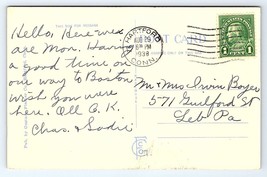 HARTFORD
AUG 29
6 PM
1938
CONN.
ST CARD
1
Hello, Here we
are Mon. Having
a good time on
our way to Boston
wish you were
here. All O.K.
Chas. & Sadie
Mr & Mrs Irvin Boyer
571 Guilford St
Leb Pa